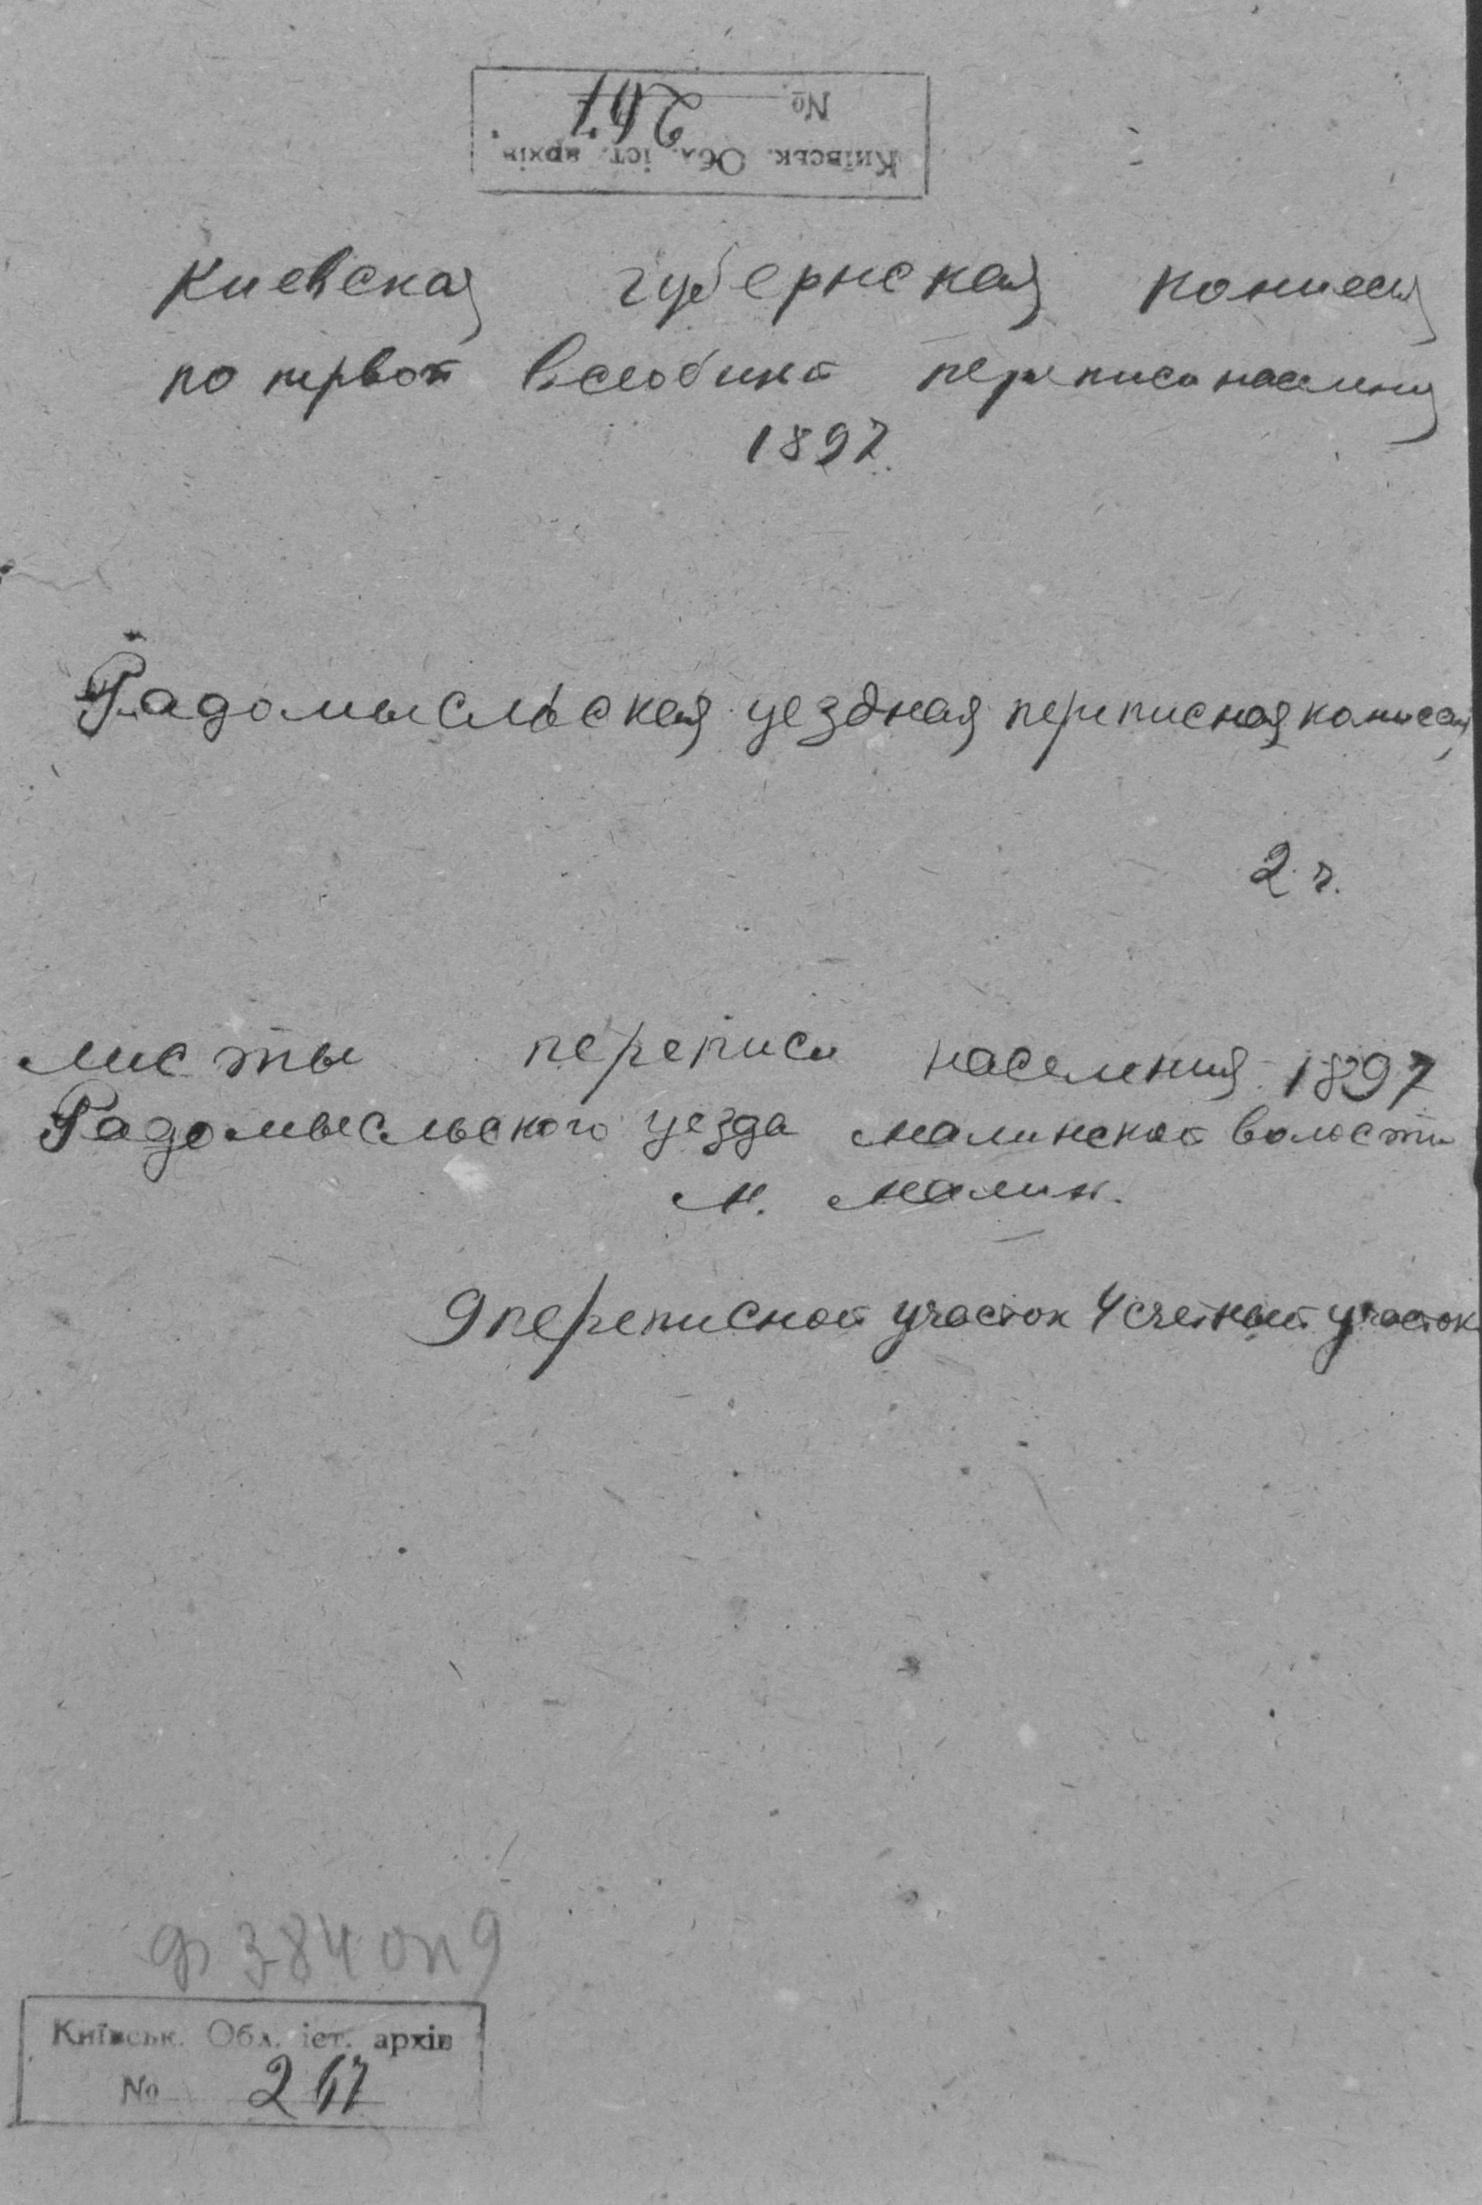 Київськ. Обл. іст. архів
№ 267
Киевская губернская комиссия
по первой всеобщей переписи населения
1897.
Радомысльская уездная переписная комиссия
2 ч.
листы переписи населения 1897
Радомысльского уезда малинской волости
м. малин.
9 переписной участок 4 счетный участок
ф 384 оп 9
Київськ. Обл. іст. архів
№ 267